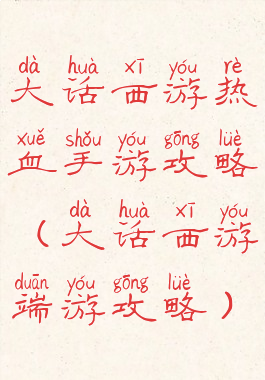 dà huà xī yóu rè
大话西游热
xuě shǒu yóu gōng lüè
血手游攻略
dà huà xī yóu
（大话西游
duān yóu gōng lüè
端游攻略）